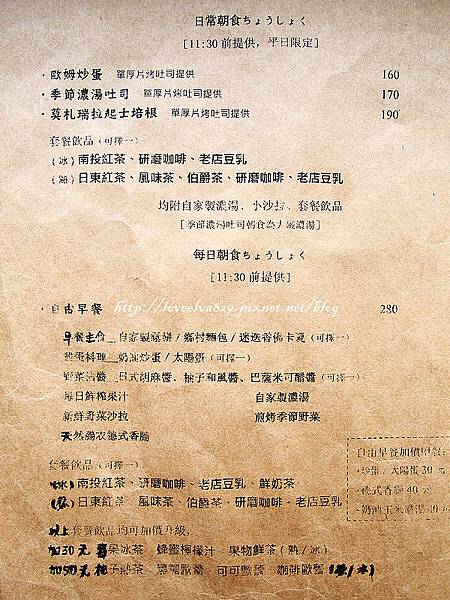 日常朝食ちょうしょく
[11:30 前提供，平日限定]
· 歐姆炒蛋 單厚片烤吐司提供 160
· 季節濃湯吐司 單厚片烤吐司提供 170
· 莫札瑞拉起士培根 單厚片烤吐司提供 190
套餐飲品 (可擇一)
(冰) 南投紅茶、研磨咖啡、老店豆乳
(熱) 日東紅茶、風味茶、伯爵茶、研磨咖啡、老店豆乳
均附自家製濃湯、小沙拉、套餐飲品
[季節濃湯吐司朝食為大碗濃湯]
每日朝食ちょうしょく
[11:30 前提供]
· 自由早餐 280
http://loveelva829.pixnet.net/blog
早餐主食 自家製 / 鄉村麵包 / 迷迭香佛卡夏 (可擇一)
雞蛋料理 奶油炒蛋 / 太陽蛋 (可擇一)
野菜沾醬 日式胡麻醬、柚子和風醬、巴薩米可醋醬 (可擇一)
每日鮮榨果汁 自家製濃湯
新鮮野菜沙拉 煎烤季節野菜
天然腸衣德式香腸
套餐飲品 (可擇一)
(冰) 南投紅茶、研磨咖啡、老店豆乳、鮮奶茶
(熱) 日東紅茶、風味茶、伯爵茶、研磨咖啡、老店豆乳
以上套餐飲品均可加價升級，
加30元 果冰茶 蜂蜜檸檬汁 果物鮮茶 (熱/冰)
加50元 柚子熱茶 歐蕾 可可歐蕾 咖啡歐蕾 (熱/冰)
自由早餐加價
· 炒蛋 / 太陽蛋 30 元
· 德式香腸 40 元
· 奶油玉米濃湯 40